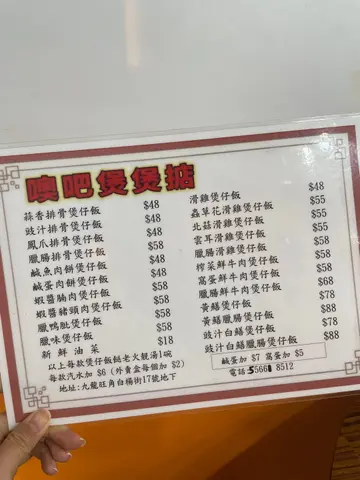 噢吧煲煲掂
蒜香排骨煲仔飯 $48
豉汁排骨煲仔飯 $48
鳳爪排骨煲仔飯 $48
臘腸排骨煲仔飯 $58
鹹魚肉餅煲仔飯 $48
鹹蛋肉餅煲仔飯 $48
蝦醬腩肉煲仔飯 $58
蝦醬豬頭肉煲仔飯 $58
臘鴨肶煲仔飯 $58
臘味煲仔飯 $58
新鮮油菜 $18
以上每款煲仔飯餸老火靚湯1碗
每款汽水加 $6 (外賣盒每個加 $2)
地址:九龍旺角白楊街17號地下
滑雞煲仔飯 $48
蟲草花滑雞煲仔飯 $55
北菇滑雞煲仔飯 $55
雲耳滑雞煲仔飯 $55
臘腸滑雞煲仔飯 $58
榨菜鮮牛肉煲仔飯 $58
窩蛋鮮牛肉煲仔飯 $58
臘腸鮮牛肉煲仔飯 $68
黃鱔煲仔飯 $78
黃鱔臘腸煲仔飯 $88
豉汁白鱔煲仔飯 $78
豉汁白鱔臘腸煲仔飯 $88
鹹蛋加 $7 窩蛋加 $5
電話:5566 8512